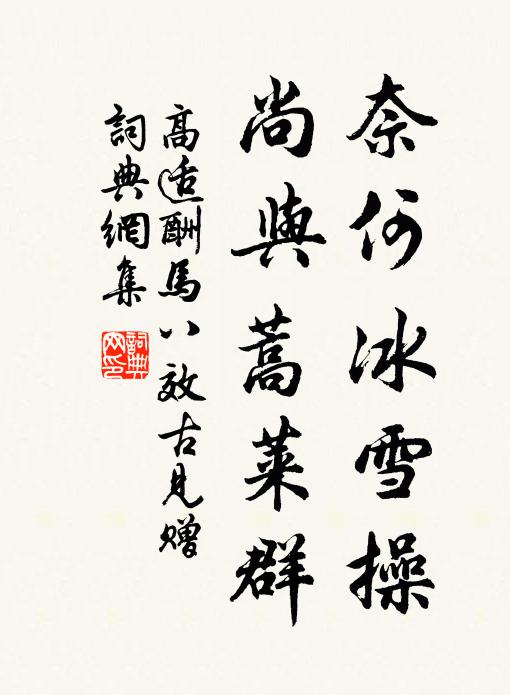 奈何冰雪操
尚與蒿萊群
高适酬馬八效古見贈
詞典網集
詞典網印